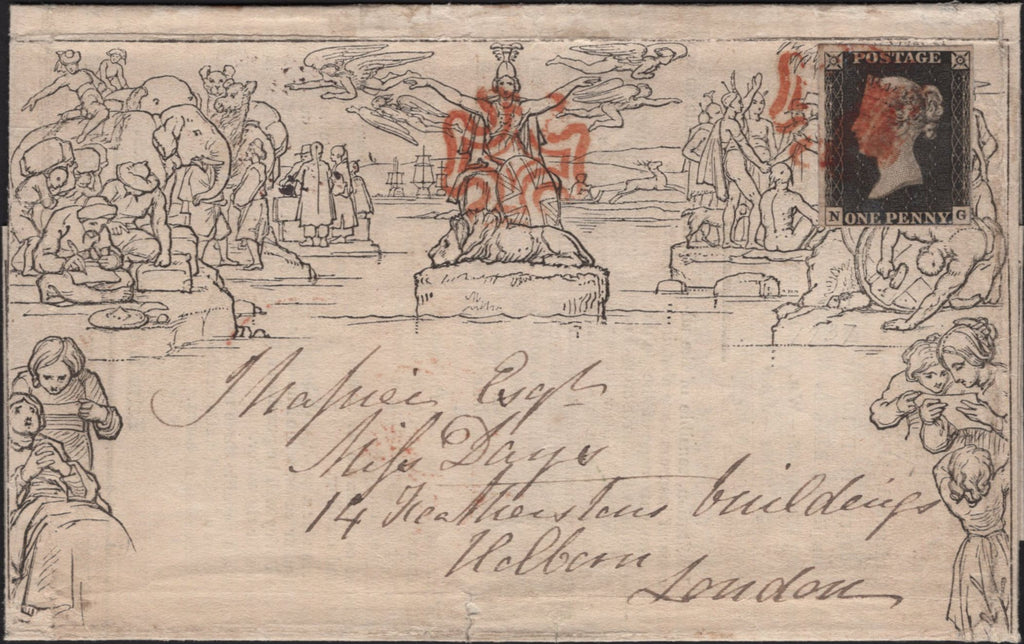 POSTAGE
N ONE PENNY G
Esqr
Miss Days
14 Featherstons buildings
Holborn
London